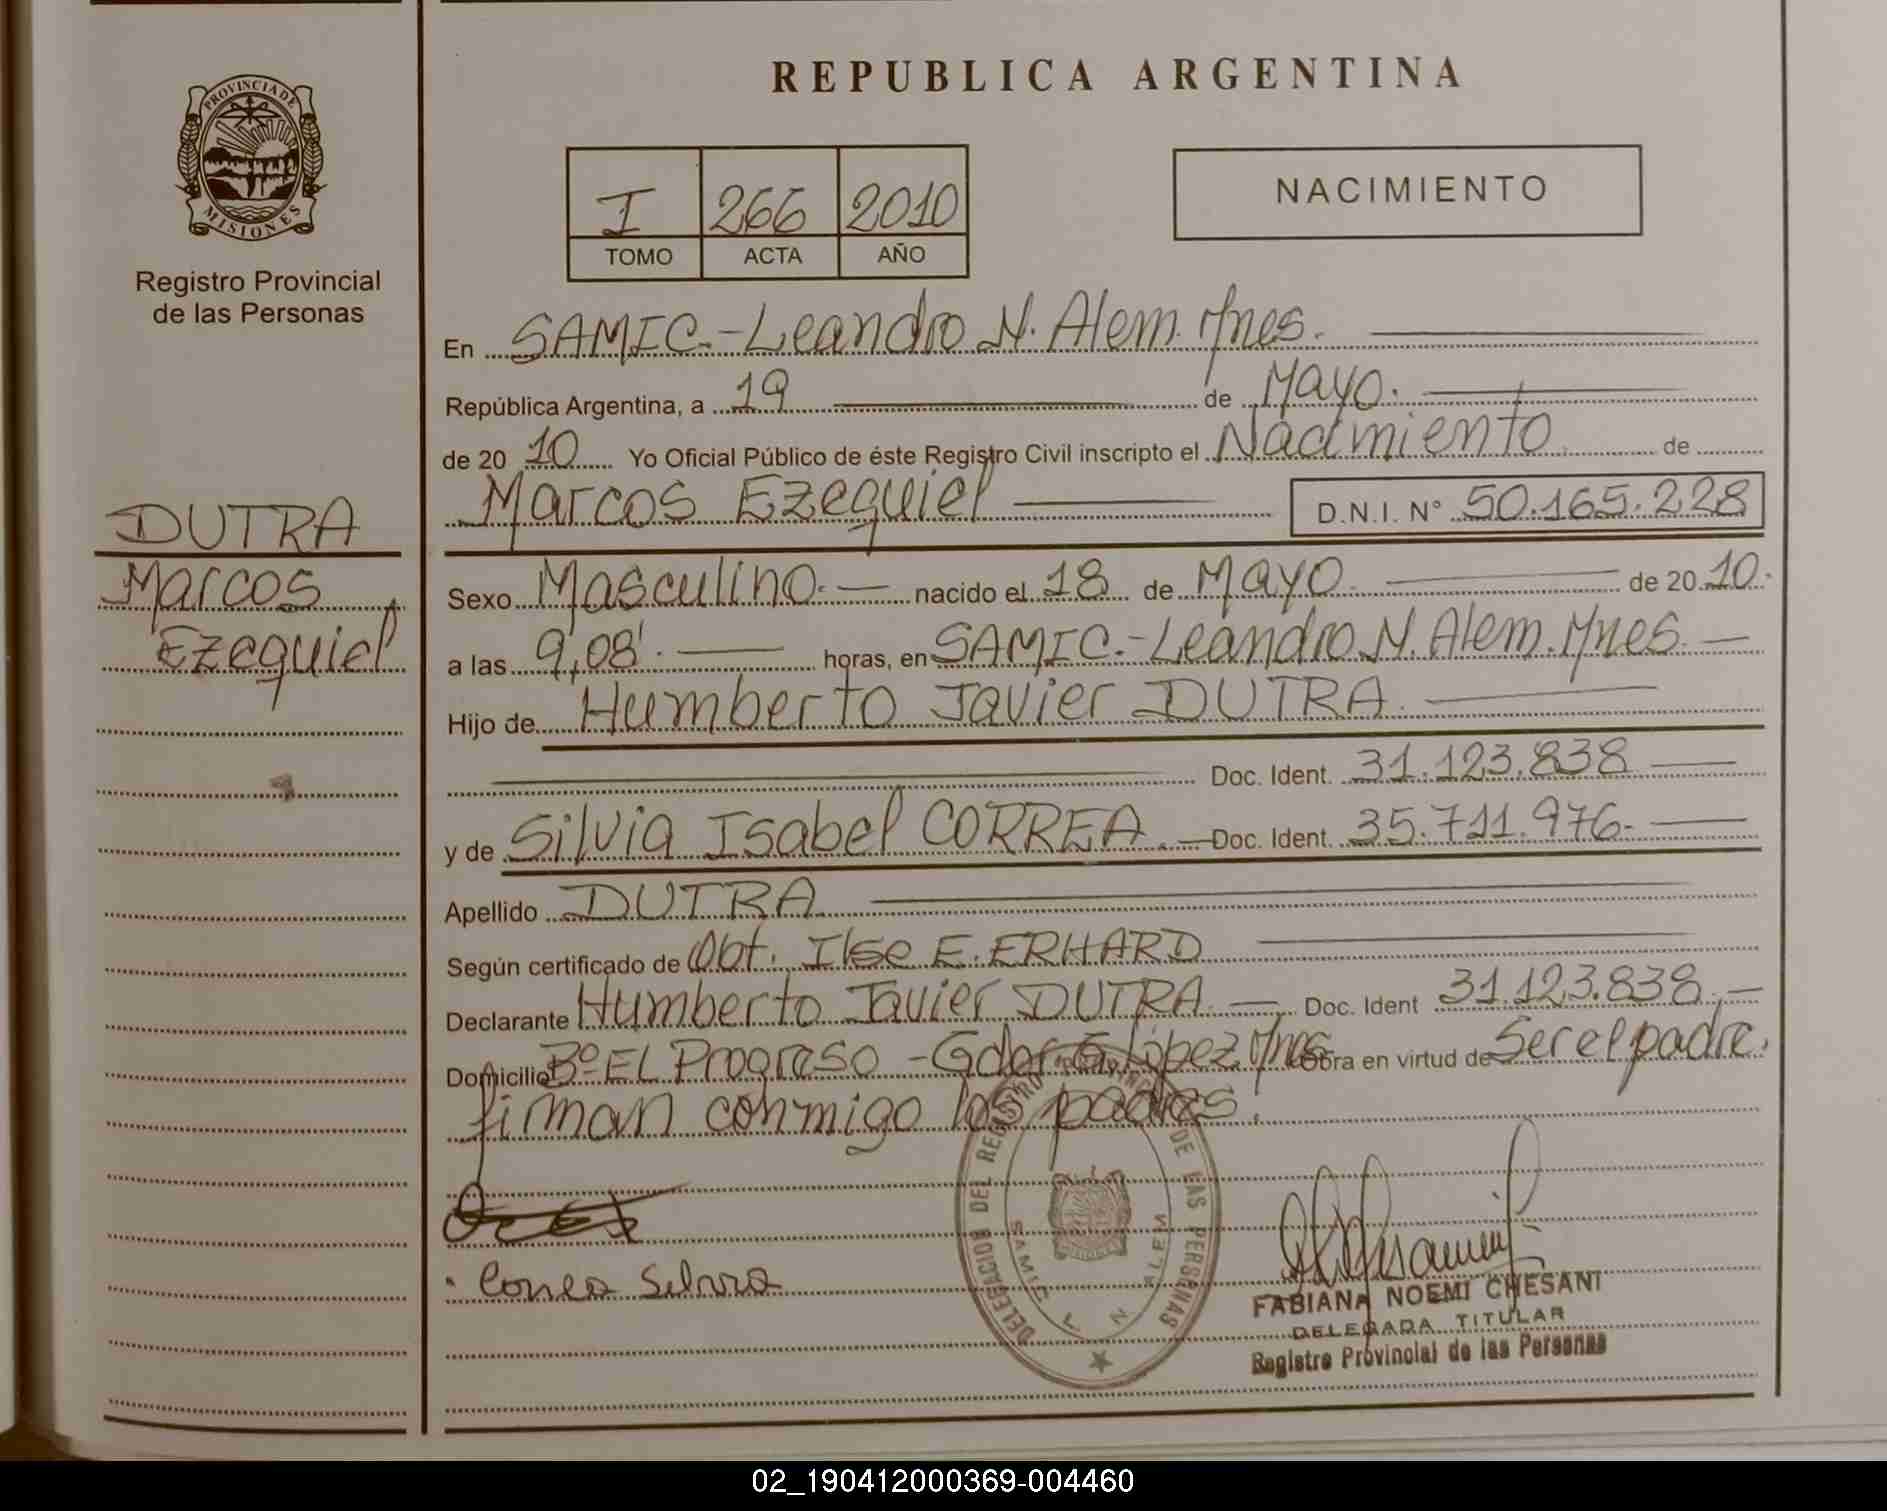 REPUBLICA ARGENTINA
PROVINCIA DE
MISIONES
Registro Provincial
de las Personas
I 266 2010
TOMO ACTA AÑO
NACIMIENTO
DUTRA
Marcos
Ezequiel
En SAMIC.-Leandro N. Alem. Mnes.
República Argentina, a 19 de Mayo.
de 20 10 Yo Oficial Público de éste Registro Civil inscripto el Nacimiento de
Marcos Ezequiel D.N.I. N° 50.165.228
Sexo Masculino.- nacido el 18 de Mayo. de 20 10.
a las 9,08'. horas, en SAMIC.-Leandro N. Alem. Mnes.
Hijo de Humberto Javier DUTRA.
Doc. Ident. 31.123.838
y de Silvia Isabel CORREA. Doc. Ident. 35.711.976.
Apellido DUTRA
Según certificado de Obt. Ilse E. ERHARD
Declarante Humberto Javier DUTRA. Doc. Ident 31.123.838.
Domicilio B° EL Progreso - Gdor. López Mnes Obra en virtud de Ser el padre.
firman conmigo los padres.
DELEGACION DEL REGISTRO PROVINCIAL DE LAS PERSONAS
SAMIC L N ALEM
Correa Silvia
FABIANA NOEMI CHESANI
DELEGADA TITULAR
Registro Provincial de las Personas
02_190412000369-004460